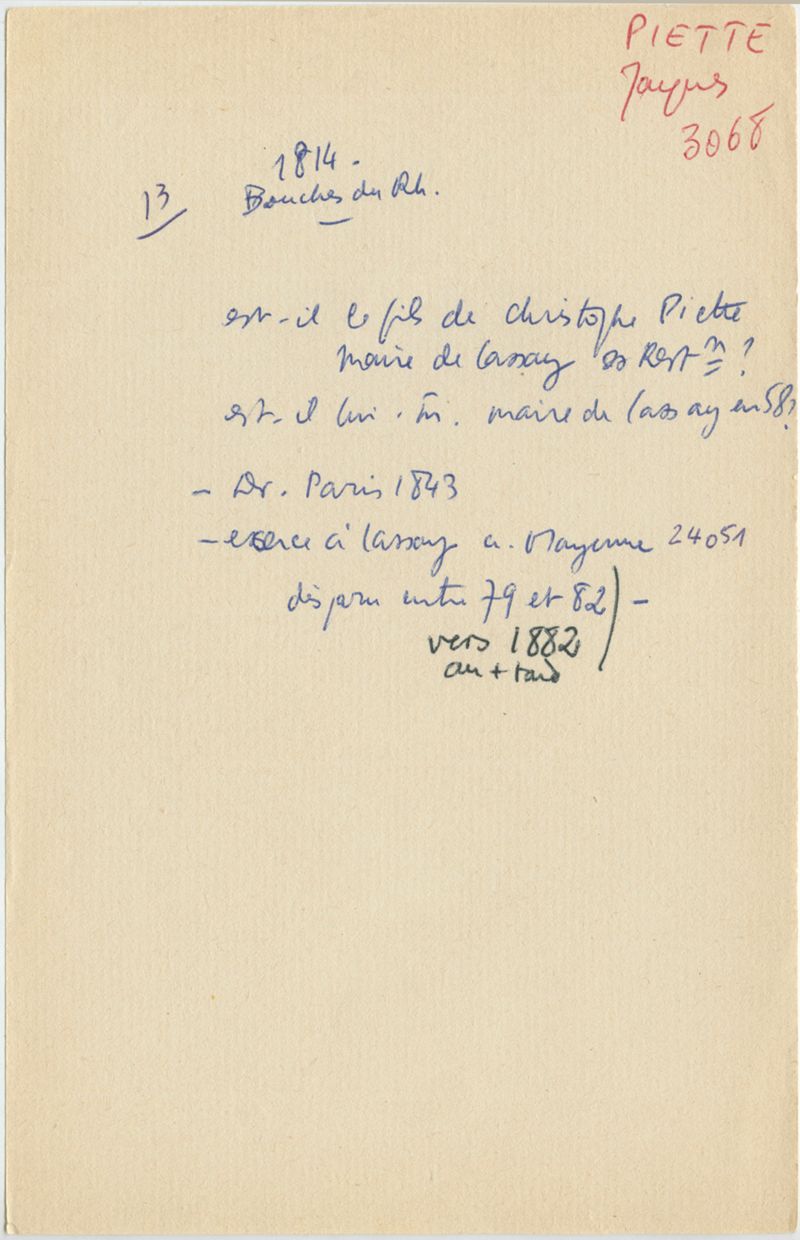 PIETTE
Jacques
3068
1814.
13 Bouches du Rh.
est-il le fils de christophe Piette
maire de Lassay ss Rest n ?
est-il lui. m. maire de Lassay en 58?
- Dr. Paris 1843
- exerce à Lassay a. Mayenne 24051
disparu entre 79 et 82) -
vers 1882
au + tard